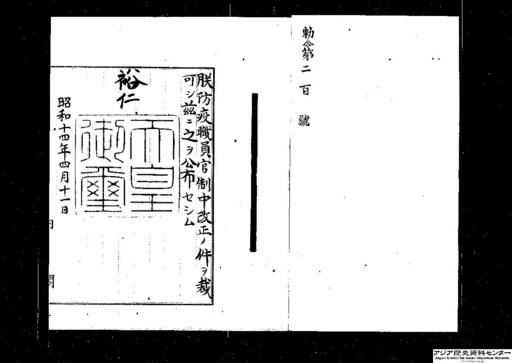 勅令第二百號
朕防疫職員官制中改正ノ件ヲ裁
可シ茲ニ之ヲ公布セシム
裕仁
天皇御璽
昭和十四年四月十一日
内閣
アジア歴史資料センター
Japan Center for Asian Historical Records